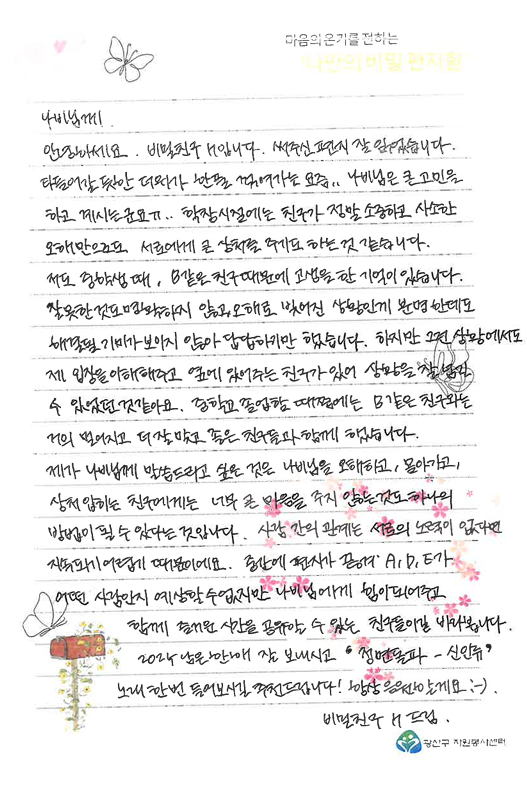 마음의 온기를 전하는
나만의 비밀 편지함
나비님께.
안녕하세요. 비밀친구 H입니다. 써주신 편지 잘 읽었습니다.
타들어갈 듯한 더위가 한풀 꺾여가는 요즘.. 나비님은 큰 고민을
하고 계시는군요ㅠ.. 학창시절에는 친구가 정말 소중하고 사소한
오해만으로도 서로에게 큰 상처를 주기도 하는 것 같습니다.
저도 중학생 때, B같은 친구 때문에 고생을 한 기억이 있습니다.
잘못한 것도 명확하지 않고, 오해로 벌어진 상황인게 분명한데도
해결될 기미가 보이지 않아 답답하기만 했습니다. 하지만 그런 상황에서도
제 입장을 이해해주고 옆에 있어주는 친구가 있어 상황을 잘 넘길
수 있었던 것 같아요. 중학교 졸업할 때쯤에는 B같은 친구와는
거의 멀어지고 더 잘 맞고 좋은 친구들과 함께 했습니다.
제가 나비님께 말씀드리고 싶은 것은 나비님을 오해하고, 몰아가고,
상처 입히는 친구에게는 너무 큰 마음을 주지 않는 것도 하나의
방법이 될 수 있다는 것입니다. 사람 간의 관계는 서로의 노력이 없다면
지속되기 어렵기 때문이에요. 중간에 편지가 끊겨 A, D, E가
어떤 사람인지 예상할 수 없지만 나비님에게 힘이 되어주고
함께 즐거운 시간을 공유할 수 있는 친구들이길 바라봅니다.
2024 남은 한 해 잘 보내시고 "정면돌파 - 신인류"
노래 한번 들어보시길 추천드립니다! 항상 응원할게요 :-).
비밀친구 H 드림.
광산구 자원봉사센터